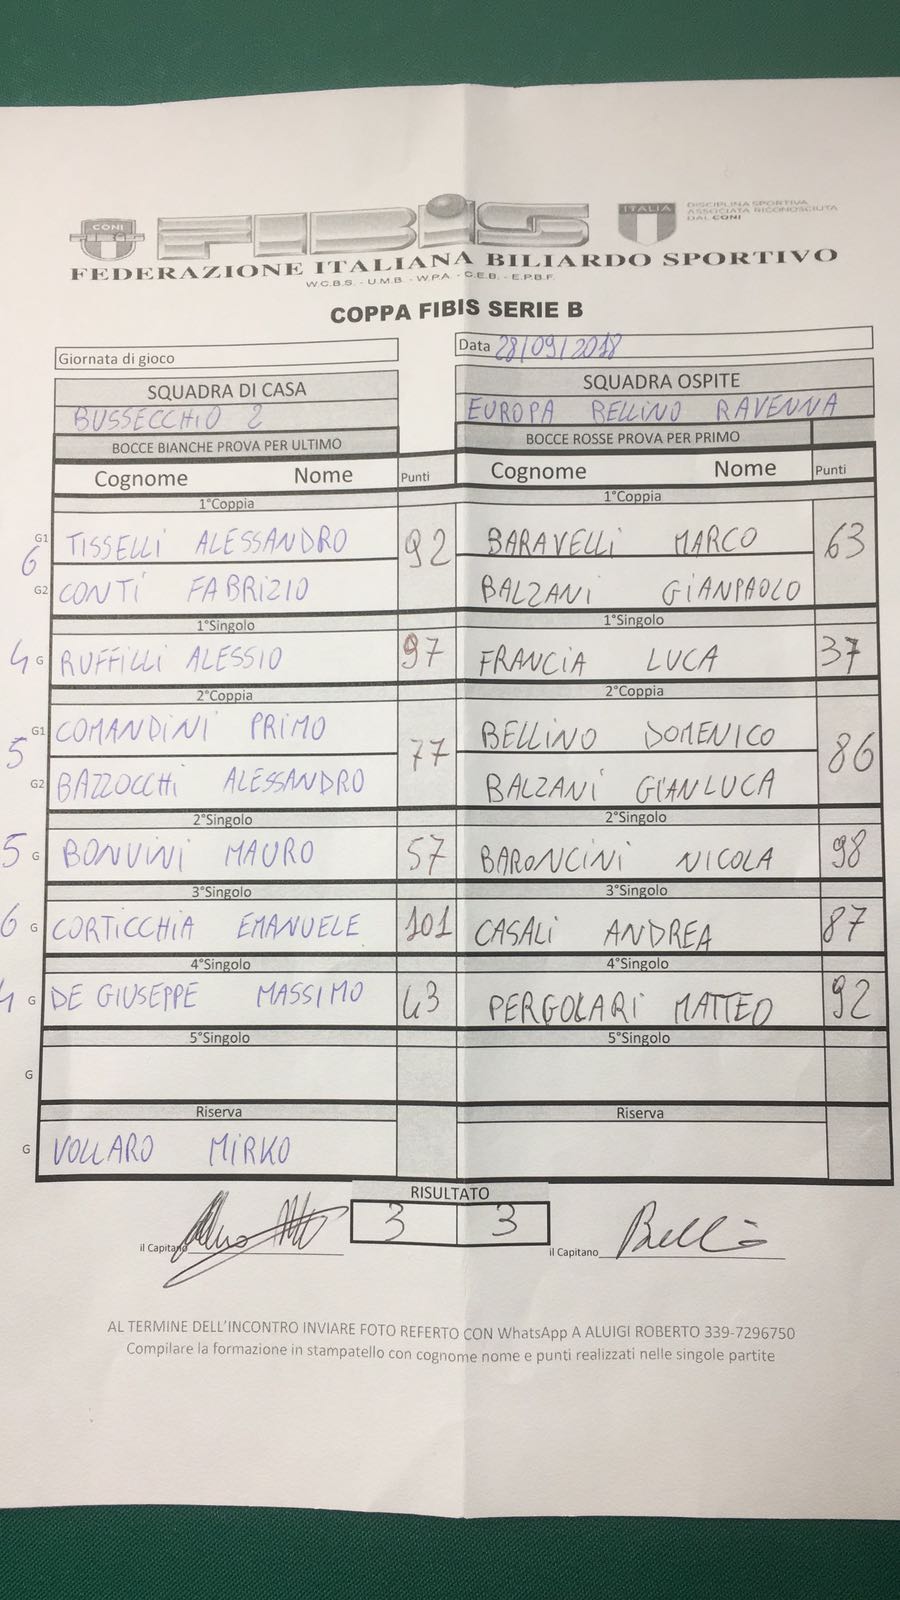 CONI
FIBIS
ITALIA
DISCIPLINA SPORTIVA
ASSOCIATA RICONOSCIUTA
DAL CONI
FEDERAZIONE ITALIANA BILIARDO SPORTIVO
W.C.B.S. - U.M.B. - W.P.A. - C.E.B. - E.P.B.F.
COPPA FIBIS SERIE B
Giornata di gioco
Data 28/09/2018
SQUADRA DI CASA SQUADRA OSPITE
BUSSECCHIO 2 EUROPA BELLINO RAVENNA
BOCCE BIANCHE PROVA PER ULTIMO BOCCE ROSSE PROVA PER PRIMO
Cognome Nome Punti Cognome Nome Punti
1°Coppia 1°Coppia
6 G1 TISSELLI ALESSANDRO 92 BARAVELLI MARCO 63
G2 CONTI FABRIZIO BALZANI GIANPAOLO
1°Singolo 1°Singolo
4 G RUFFILLI ALESSIO 97 FRANCIA LUCA 37
2°Coppia 2°Coppia
5 G1 COMANDINI PRIMO 77 BELLINO DOMENICO 86
G2 BAZZOCCHI ALESSANDRO BALZANI GIANLUCA
2°Singolo 2°Singolo
5 G BONVINI MAURO 57 BARONCINI NICOLA 98
3°Singolo 3°Singolo
6 G CORTICCHIA EMANUELE 101 CASALI ANDREA 87
4°Singolo 4°Singolo
4 G DE GIUSEPPE MASSIMO 43 PERGOLARI MATTEO 92
5°Singolo 5°Singolo
G
Riserva Riserva
G VOLLARO MIRKO
RISULTATO
3 3
il Capitano il Capitano Belli
AL TERMINE DELL'INCONTRO INVIARE FOTO REFERTO CON WhatsApp A ALUIGI ROBERTO 339-7296750
Compilare la formazione in stampatello con cognome nome e punti realizzati nelle singole partite